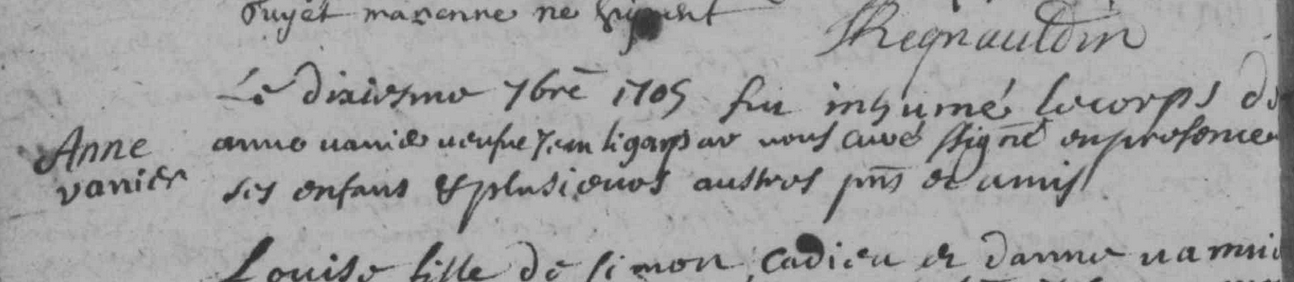 Puyet mazenne ne signent
JRegnauldin
Le dixiesme 7bre 1705 fut inhumé lecorps de
Anne vanier
anne vanier veufve Jean ligar par nous curé ssigné en presence
ses enfans & plusieurs austres pns et amis
Louise fille de simon Cadieu et danne vannie